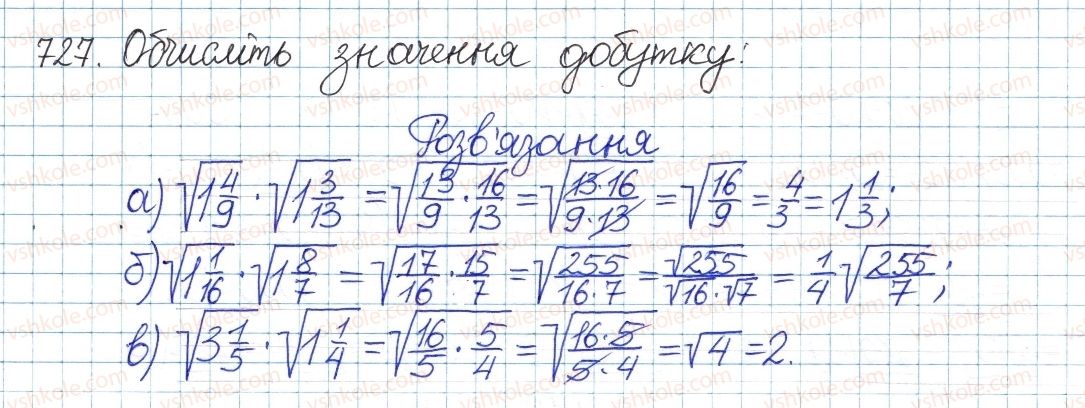 727. Обчисліть значення добутку:
Розв'язання
а) √(1 4/9) · √(1 3/13) = √(13/9 · 16/13) = √(13·16/9·13) = √(16/9) = 4/3 = 1 1/3;
б) √(1 1/16) · √(1 8/7) = √(17/16 · 15/7) = √(255/16·7) = √255/√16·√7 = 1/4 √(255/7);
в) √(3 1/5) · √(1 1/4) = √(16/5 · 5/4) = √(16·5/5·4) = √4 = 2.